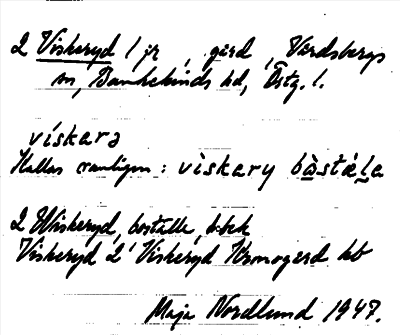 2 Viskeryd 1 jr, gård, Vårdsbergs
sn, Bankekinds hd, Östg. l.
vískarə
Kallas vanligen: vìskary bòstɛ̀ḷa
2 Wiskeryd, boställe, kbek
Viskeryd 2 Viskeryd Kronogård kb
Maja Nordlund 1947.